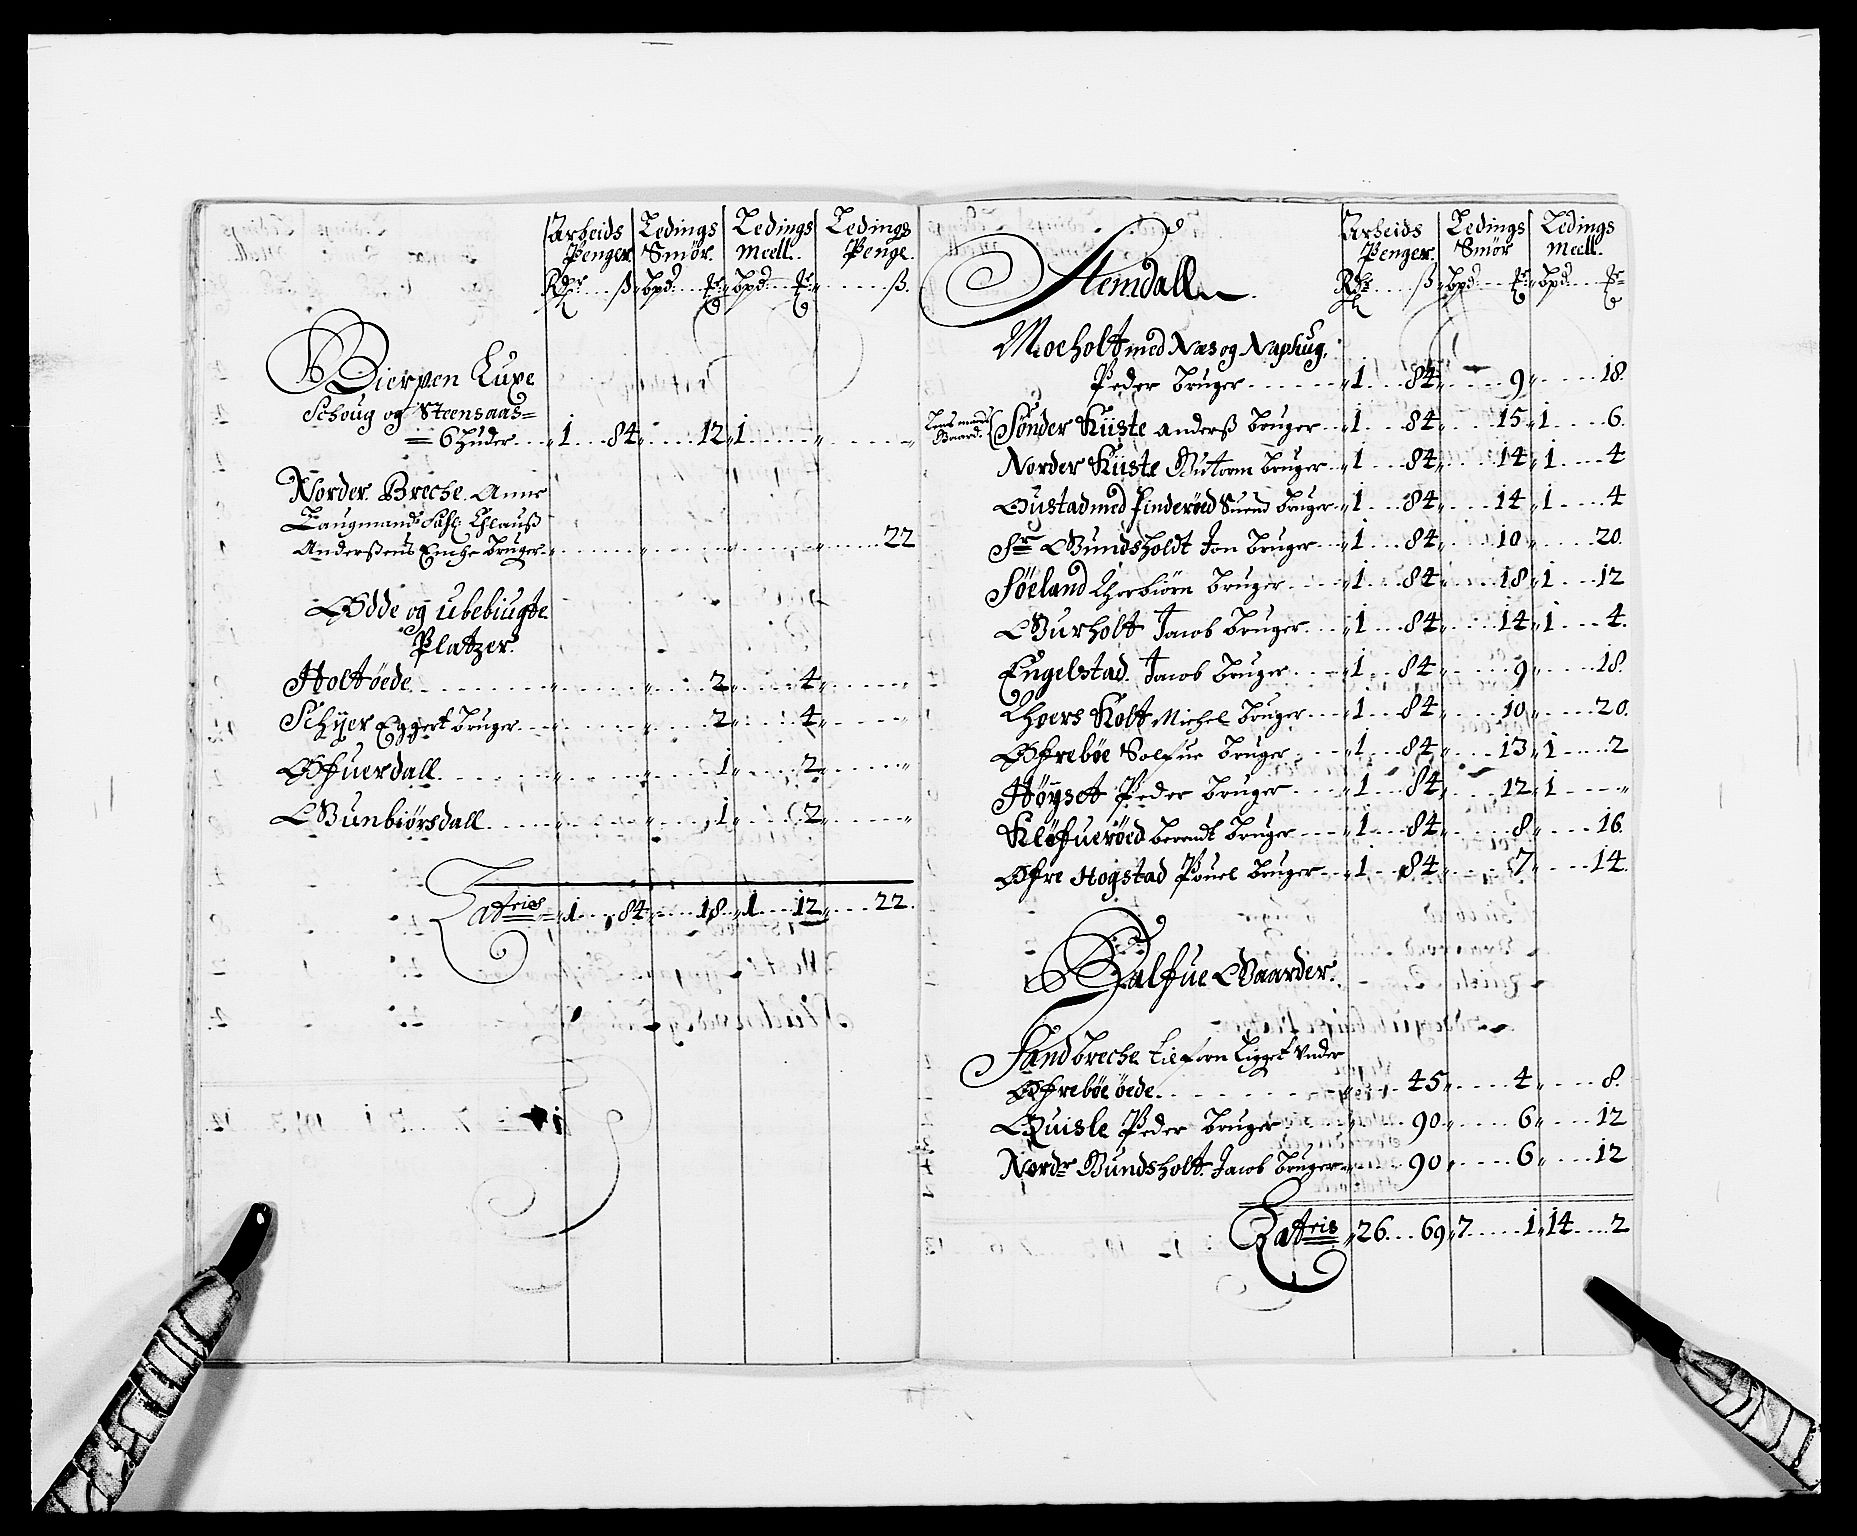 Arbeids Ledings Ledings Ledings
Penger Smör. Meell. Penge.
Rdr ß bpd bpd ß.
Bierpen Luxe
Schoug og Steensaas=
= 6 huder 1 84 12 1
Norder Breche Anne
Laugmands Sahl: Chlauß
Anderßens Encke bruger 22
Øde og ubebiugte
Platzer.
Holt öede 2 4
Schyer Eggert bruger 2 4
Ofuerdall 1 2
Gunbiörsdall 1 2
Latris 1 84 18 1 12 22.
Arbeids Ledings Ledings
Penger. Smör Meell.
Rdr ß bpd bpd
Stemdall
Moeholt med Næs og Naphug,
Peder bruger 1 84 9 18.
Lens mands Gaard. Sönder Kiiste Anderß bruger 1 84 15 1 6.
Norder Kiiste Guttorm bruger 1 84 14 1 4
Oustad med Finderöed Suend bruger 1 84 14 1 4
Sr Gundsholdt Jon bruger 1 84 10 20.
Söeland Thorbiörn bruger 1 84 18 1 12
Gurholt Jacob bruger 1 84 14 1 4.
Engelstad. Jacob bruger 1 84 9 18.
Thors Kolt Michel bruger 1 84 10 20.
Ofreböe Solfue bruger 1 84 13 1 2
Höyset Peder bruger 1 84 12 1
Klöfueröed berendt bruger 1 84 8 16.
Ofre Hogstad Pouel bruger 1 84 7 14.
Halfue Gaarder.
Sandbreche til forn ligget under
Ofreböe öede 45 4 8.
Quisle Peder bruger 90 6 12
Nordr Gundsholt Jacob bruger 90 6 12
Latris 26 69 7 1 14 2